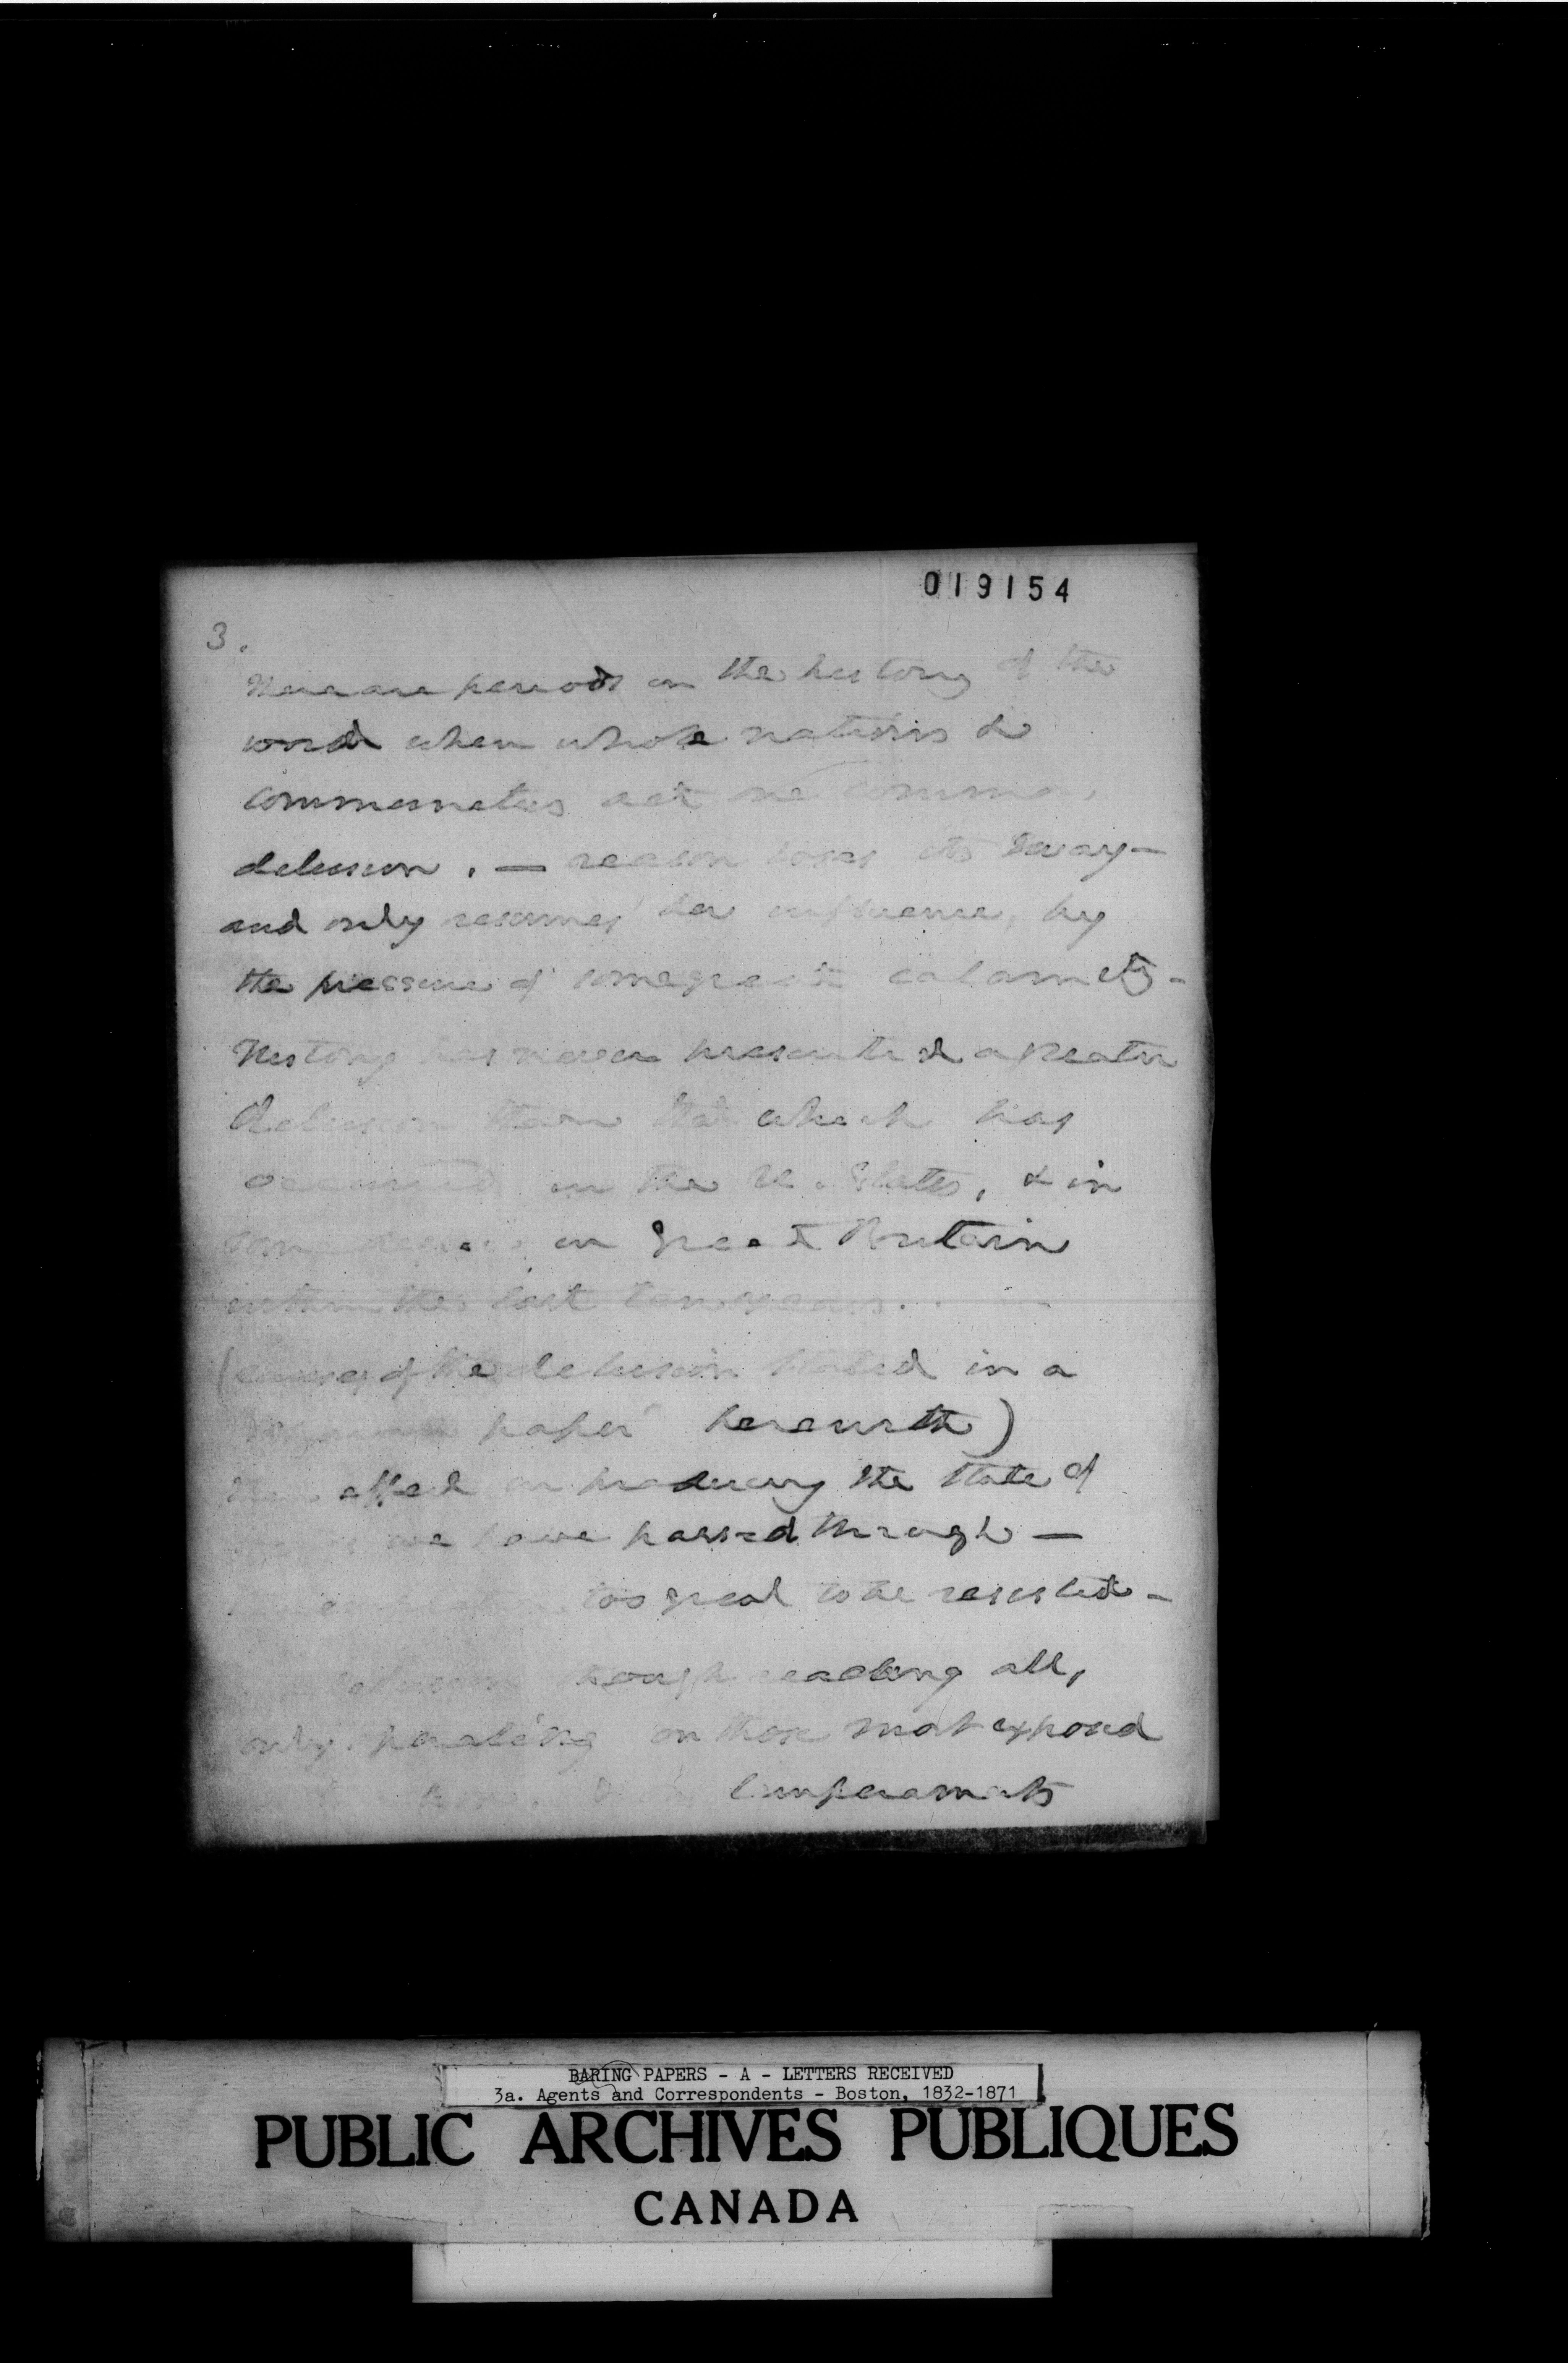 019154
3.
There are periods in the history of the
world when whole nations &
communities act one common
delusion. — reason loses its sway —
and only resumes her influence, by
the pressure of some great calamity -
History has never presented a greater
delusion than that which has
occurred in the U. States, & in
some degree in Great Britain
within the last ten years. —
(causes of the delusion stated in a
paper herewith)
effect in producing the state of
we have passed through —
too great to be resisted -
though reaching all,
only on those most exposed
temperaments
BARING PAPERS - A - LETTERS RECEIVED
3a. Agents and Correspondents - Boston, 1832-1871
PUBLIC ARCHIVES PUBLIQUES
CANADA